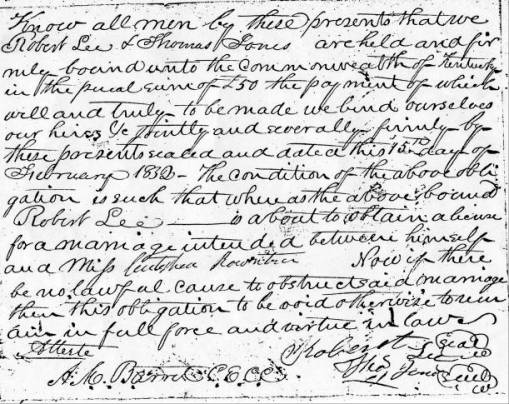 Know all men by these presents that we
Robert Lee & Thomas Jones are held and fir
mly bound unto the commonwealth of Kentucky
in the pural sum of £50 the payment of which
well and truly to be made we bind ourselves
our heirs &c jointly and severally firmly by
these presents sealed and dated this 15th day of
February 1832 - The condition of the above obli
gation is such that where as the above bound
Robert Lee is about to obtain a license
for a marriage intended between himself
and Miss Now if there
be no lawful cause to obstruct said marriage
then this obligation to be void otherwise to rem
ain in full force and virtue in law
Atteste Robert Lee seal
A. M. C.C.C. Thos Jones seal